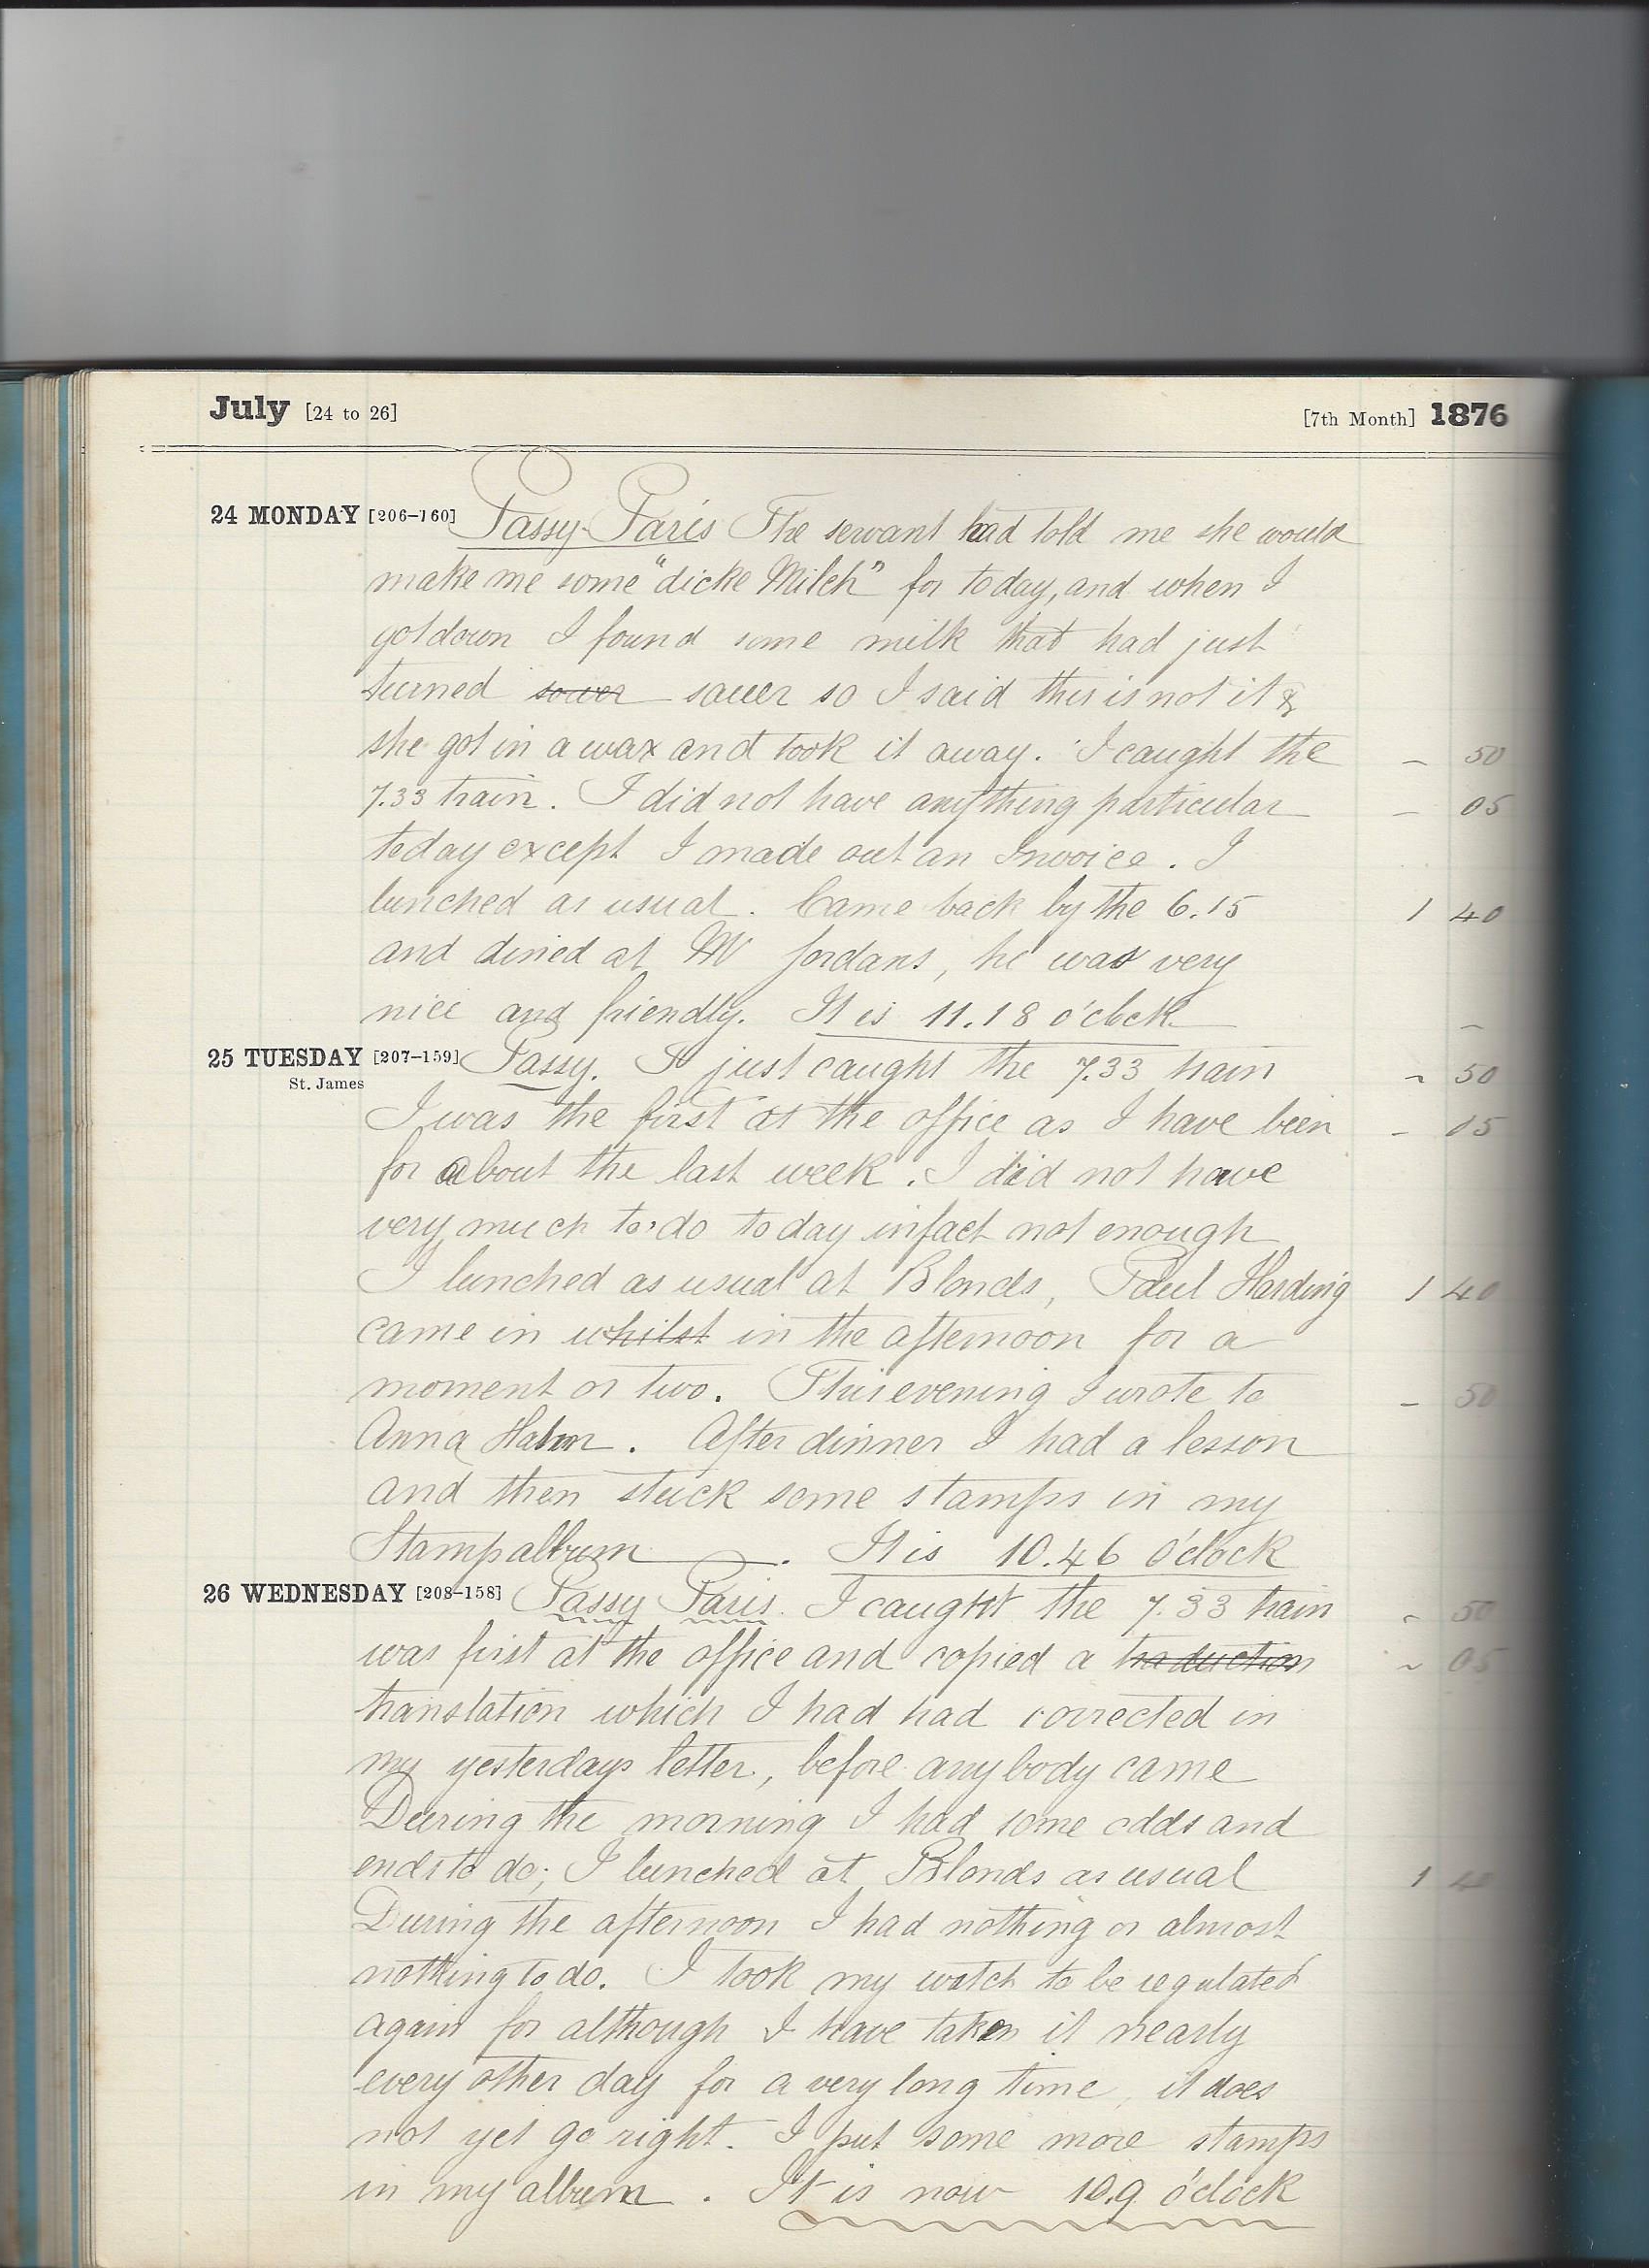 July [24 to 26] [7th Month] 1876
24 MONDAY [206-160] Passy-Paris The servant had told me she would
make me some "dicke Milch" for today, and when I
got down I found some milk that had just
turned sower sauer so I said this is not it &
she got in a wax and took it away. I caught the – 50
7.33 train. I did not have anything particular – 05
today except I made out an Invoice. I
lunched as usual. Came back by the 6.15 1 40
and dined at Mr Jordans, he was very
nice and friendly. It is 11.18 o'clock –
25 TUESDAY [207-159] Passy. I just caught the 7.33 train – 50
St. James
I was the first at the office as I have been – 05
for about the last week. I did not have
very much to do today infact not enough
I lunched as usual at Blonds, Paul Harding 1 40
came in whilst in the afternoon for a
moment or two. This evening I wrote to – 50
Anna Hahn. After dinner I had a lesson
and then stuck some stamps in my
Stampalbum. It is 10.46 o'clock
26 WEDNESDAY [208-158] Passy Paris. I caught the 7.33 train – 50
was first at the office and copied a traduction – 05
translation which I had had corrected in
my yesterdays letter, before anybody came
During the morning I had some odds and
ends to do; I lunched at Blonds as usual 1 40
During the afternoon I had nothing or almost
nothing to do. I took my watch to be regulated
again for although I have taken it nearly
every other day for a very long time, it does
not yet go right. I put some more stamps
in my album. It is now 10.9 o'clock